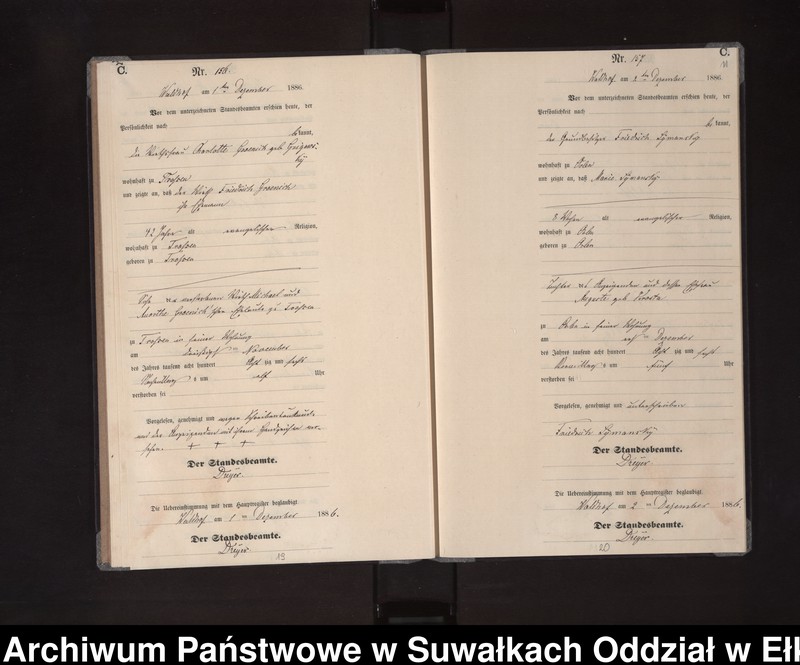 C.
Nr. 156.
Waldhof am 1 ten Dezember 1886.
Vor dem unterzeichneten Standesbeamten erschien heute, der
Persönlichkeit nach
be kannt,
die Wirthsfrau Charlotte geb
wohnhaft zu Trossen
und zeigte an, daß der Wirth Friedrich
ihr Ehemann
42 Jahre alt evangelischer Religion,
wohnhaft zu Trossen
geboren zu Trossen
Sohn der verstorbenen Wirth Michael und
Eheleute zu Trossen
zu Trossen in seiner Wohnung
am dreißigsten November
des Jahres tausend acht hundert acht zig und sechs
Nachmittags um elf Uhr
verstorben sei
Vorgelesen, genehmigt und wegen Schreibensunkunde
von der Anzeigenden mit ihrem Handzeichen ver-
sehen. + + +
Der Standesbeamte.
Dreyer.
Die Uebereinstimmung mit dem Hauptregister beglaubigt
Waldhof am 1 ten Dezember 1886.
Der Standesbeamte.
Dreyer
19
C.
Nr. 157
11
Waldhof am 2 ten Dezember 1886.
Vor dem unterzeichneten Standesbeamten erschien heute, der
Persönlichkeit nach
be kannt,
der Grundbesitzer Friedrich Symansky
wohnhaft zu
und zeigte an, daß Marie Symansky
3 Wochen alt evangelischer Religion,
wohnhaft zu
geboren zu
Tochter des Anzeigenden und dessen Ehefrau
Auguste geb
zu in seiner Wohnung
am ersten Dezember
des Jahres tausend acht hundert acht zig und sechs
Vormittags um fünf Uhr
verstorben sei
Vorgelesen, genehmigt und unterschrieben
Friedrich Symansky
Der Standesbeamte.
Dreyer.
Die Uebereinstimmung mit dem Hauptregister beglaubigt
Waldhof am 2 ten Dezember 1886.
Der Standesbeamte.
Dreyer.
20
Archiwum Państwowe w Suwałkach Oddział w Eł